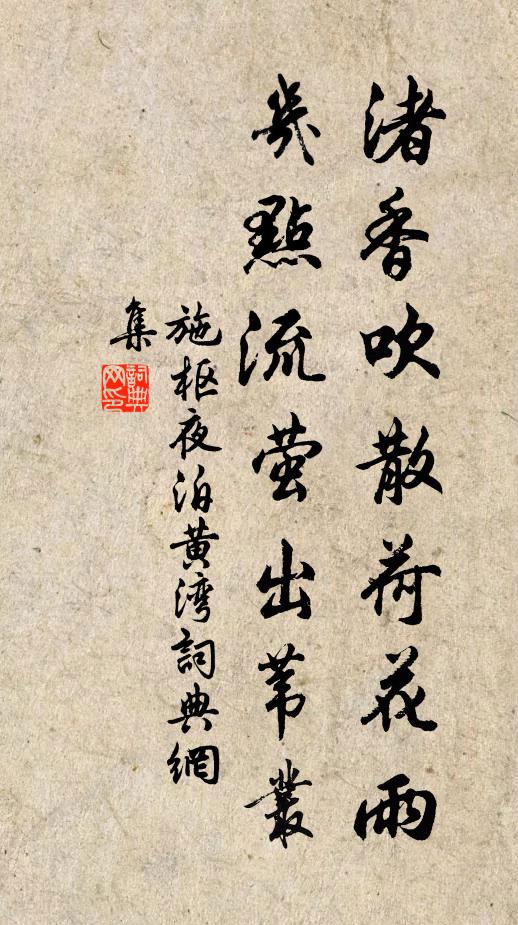 渚香吹散荷花雨
幾點流萤出苇叢
施枢夜泊黄湾詞典網
集
詞典网印